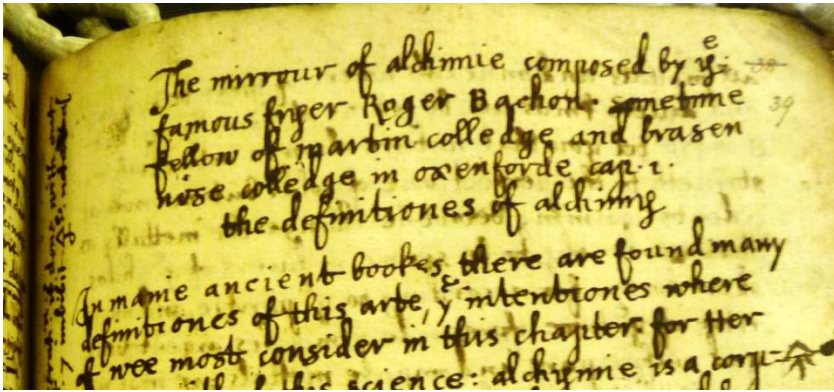 The mirrour of alchimie composed by yᵉ
famous fryer Roger Bachon. sometime
fellow of martin colledge and brasen
nose colledge in oxenforde cap. 1.
the definitiones of alchimy
In manie ancient bookes there are found many
definitiones of this arte, yᵉ intentiones where
of wee most consider in this chapter. for Her
this science: alchymie is a corp
39